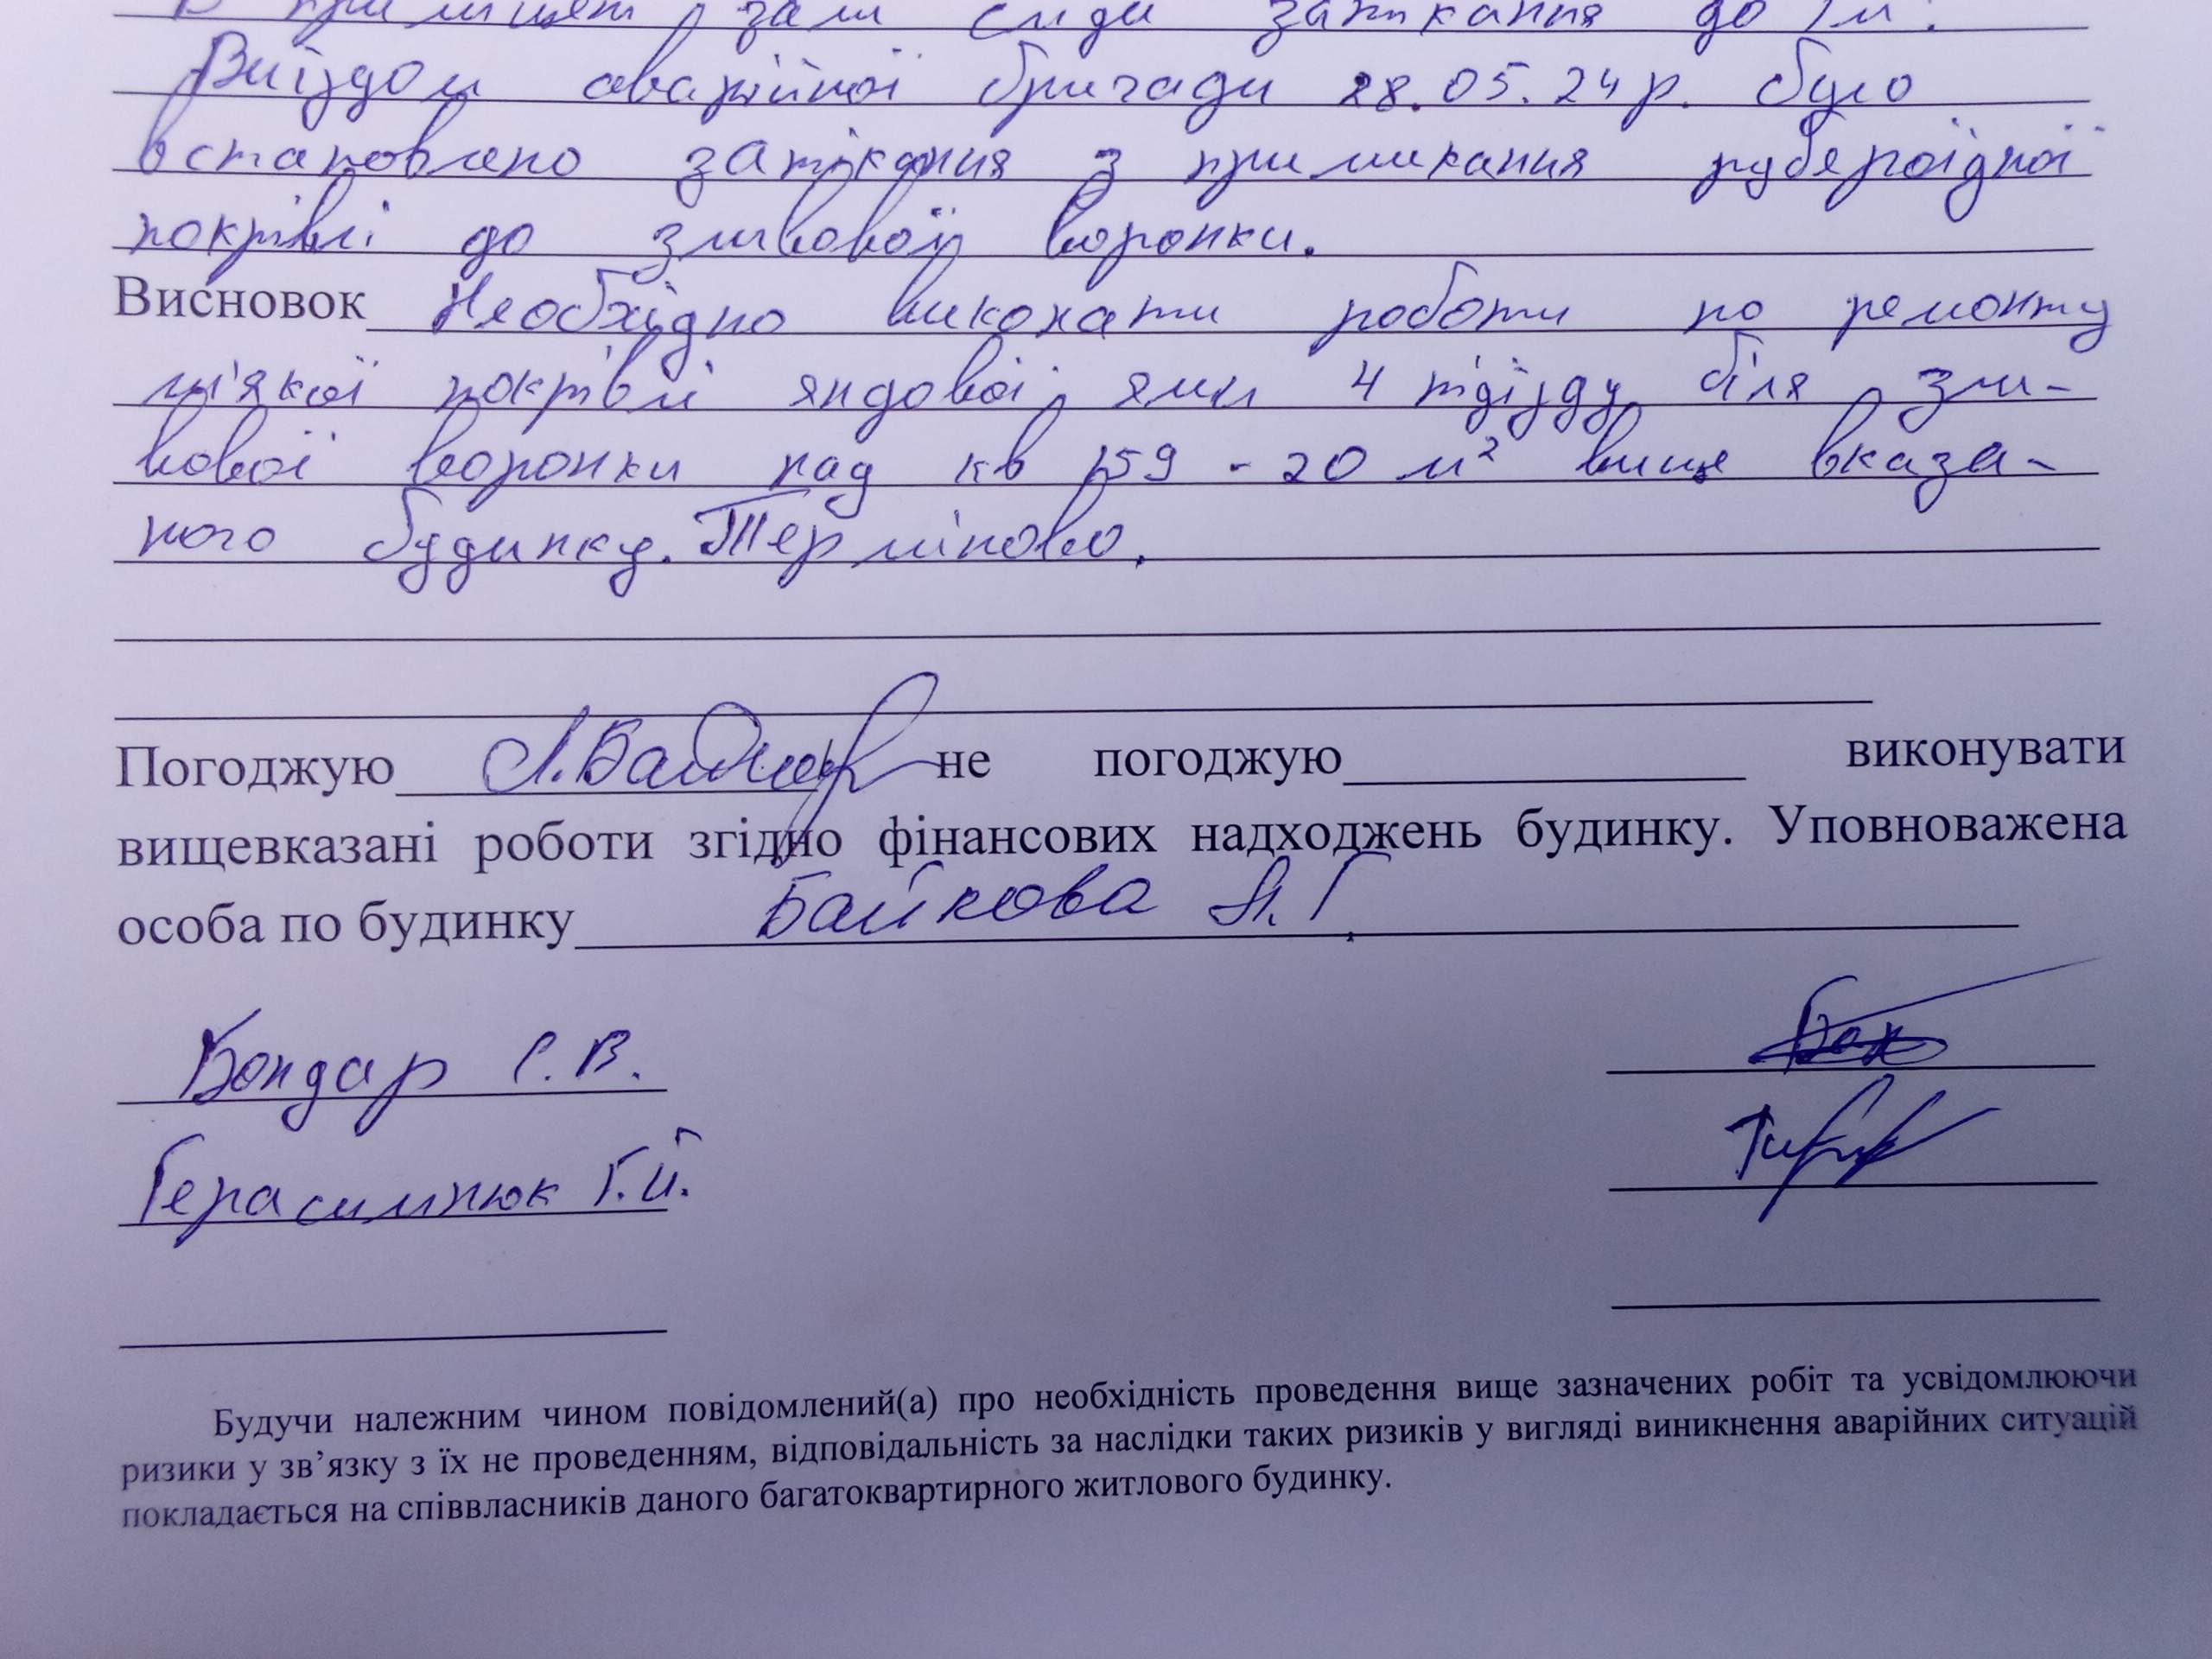 В приміщені зали сліди затікання до 1м.
Виїздом аварійної бригади 28.05.24р. було
встановлено затікання з примикання рубероїдної
покрівлі до зливової воронки.
Висновок Необхідно виконати роботи по ремонту
м'якої покрівлі яндової ями 4 підїзду біля зли-
вової воронки над кв 159 - 20 м² вище вказа-
ного будинку. Терміново.
Погоджую не погоджую виконувати
вищевказані роботи згідно фінансових надходжень будинку. Уповноважена
особа по будинку Байкова Л.Г.
Бондар С.В.
Герасимнюк Г.Й.
Будучи належним чином повідомлений(а) про необхідність проведення вище зазначених робіт та усвідомлюючи
ризики у зв’язку з їх не проведенням, відповідальність за наслідки таких ризиків у вигляді виникнення аварійних ситуацій
покладається на співвласників даного багатоквартирного житлового будинку.